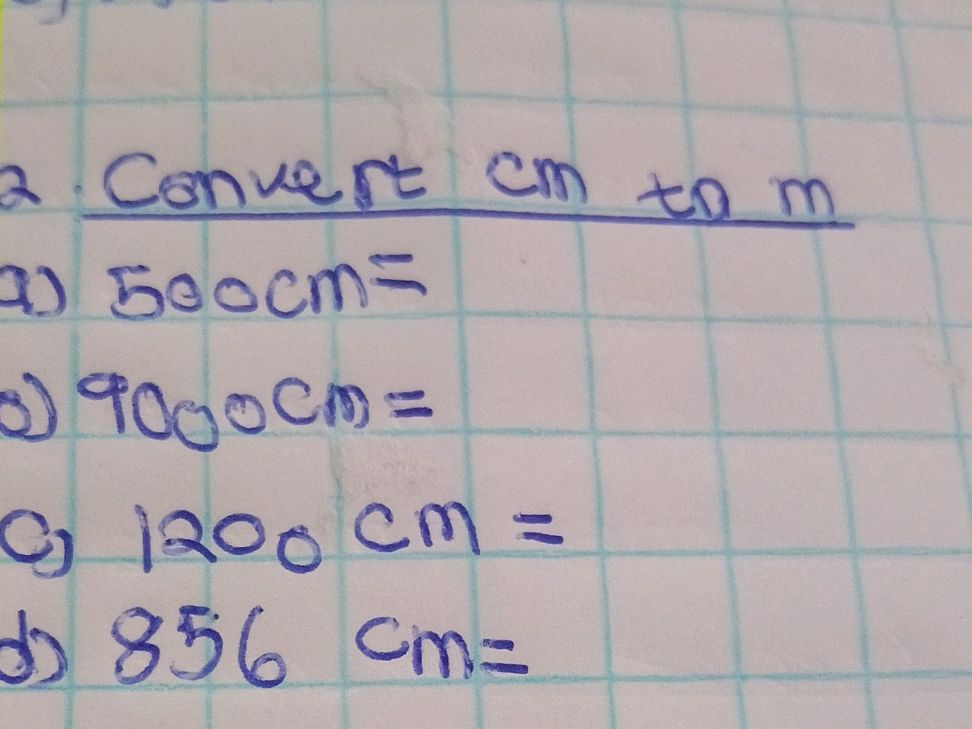 2. Convert cm to m
a) 500cm=
b) 9000cm=
c) 1200 cm =
d) 856 cm=